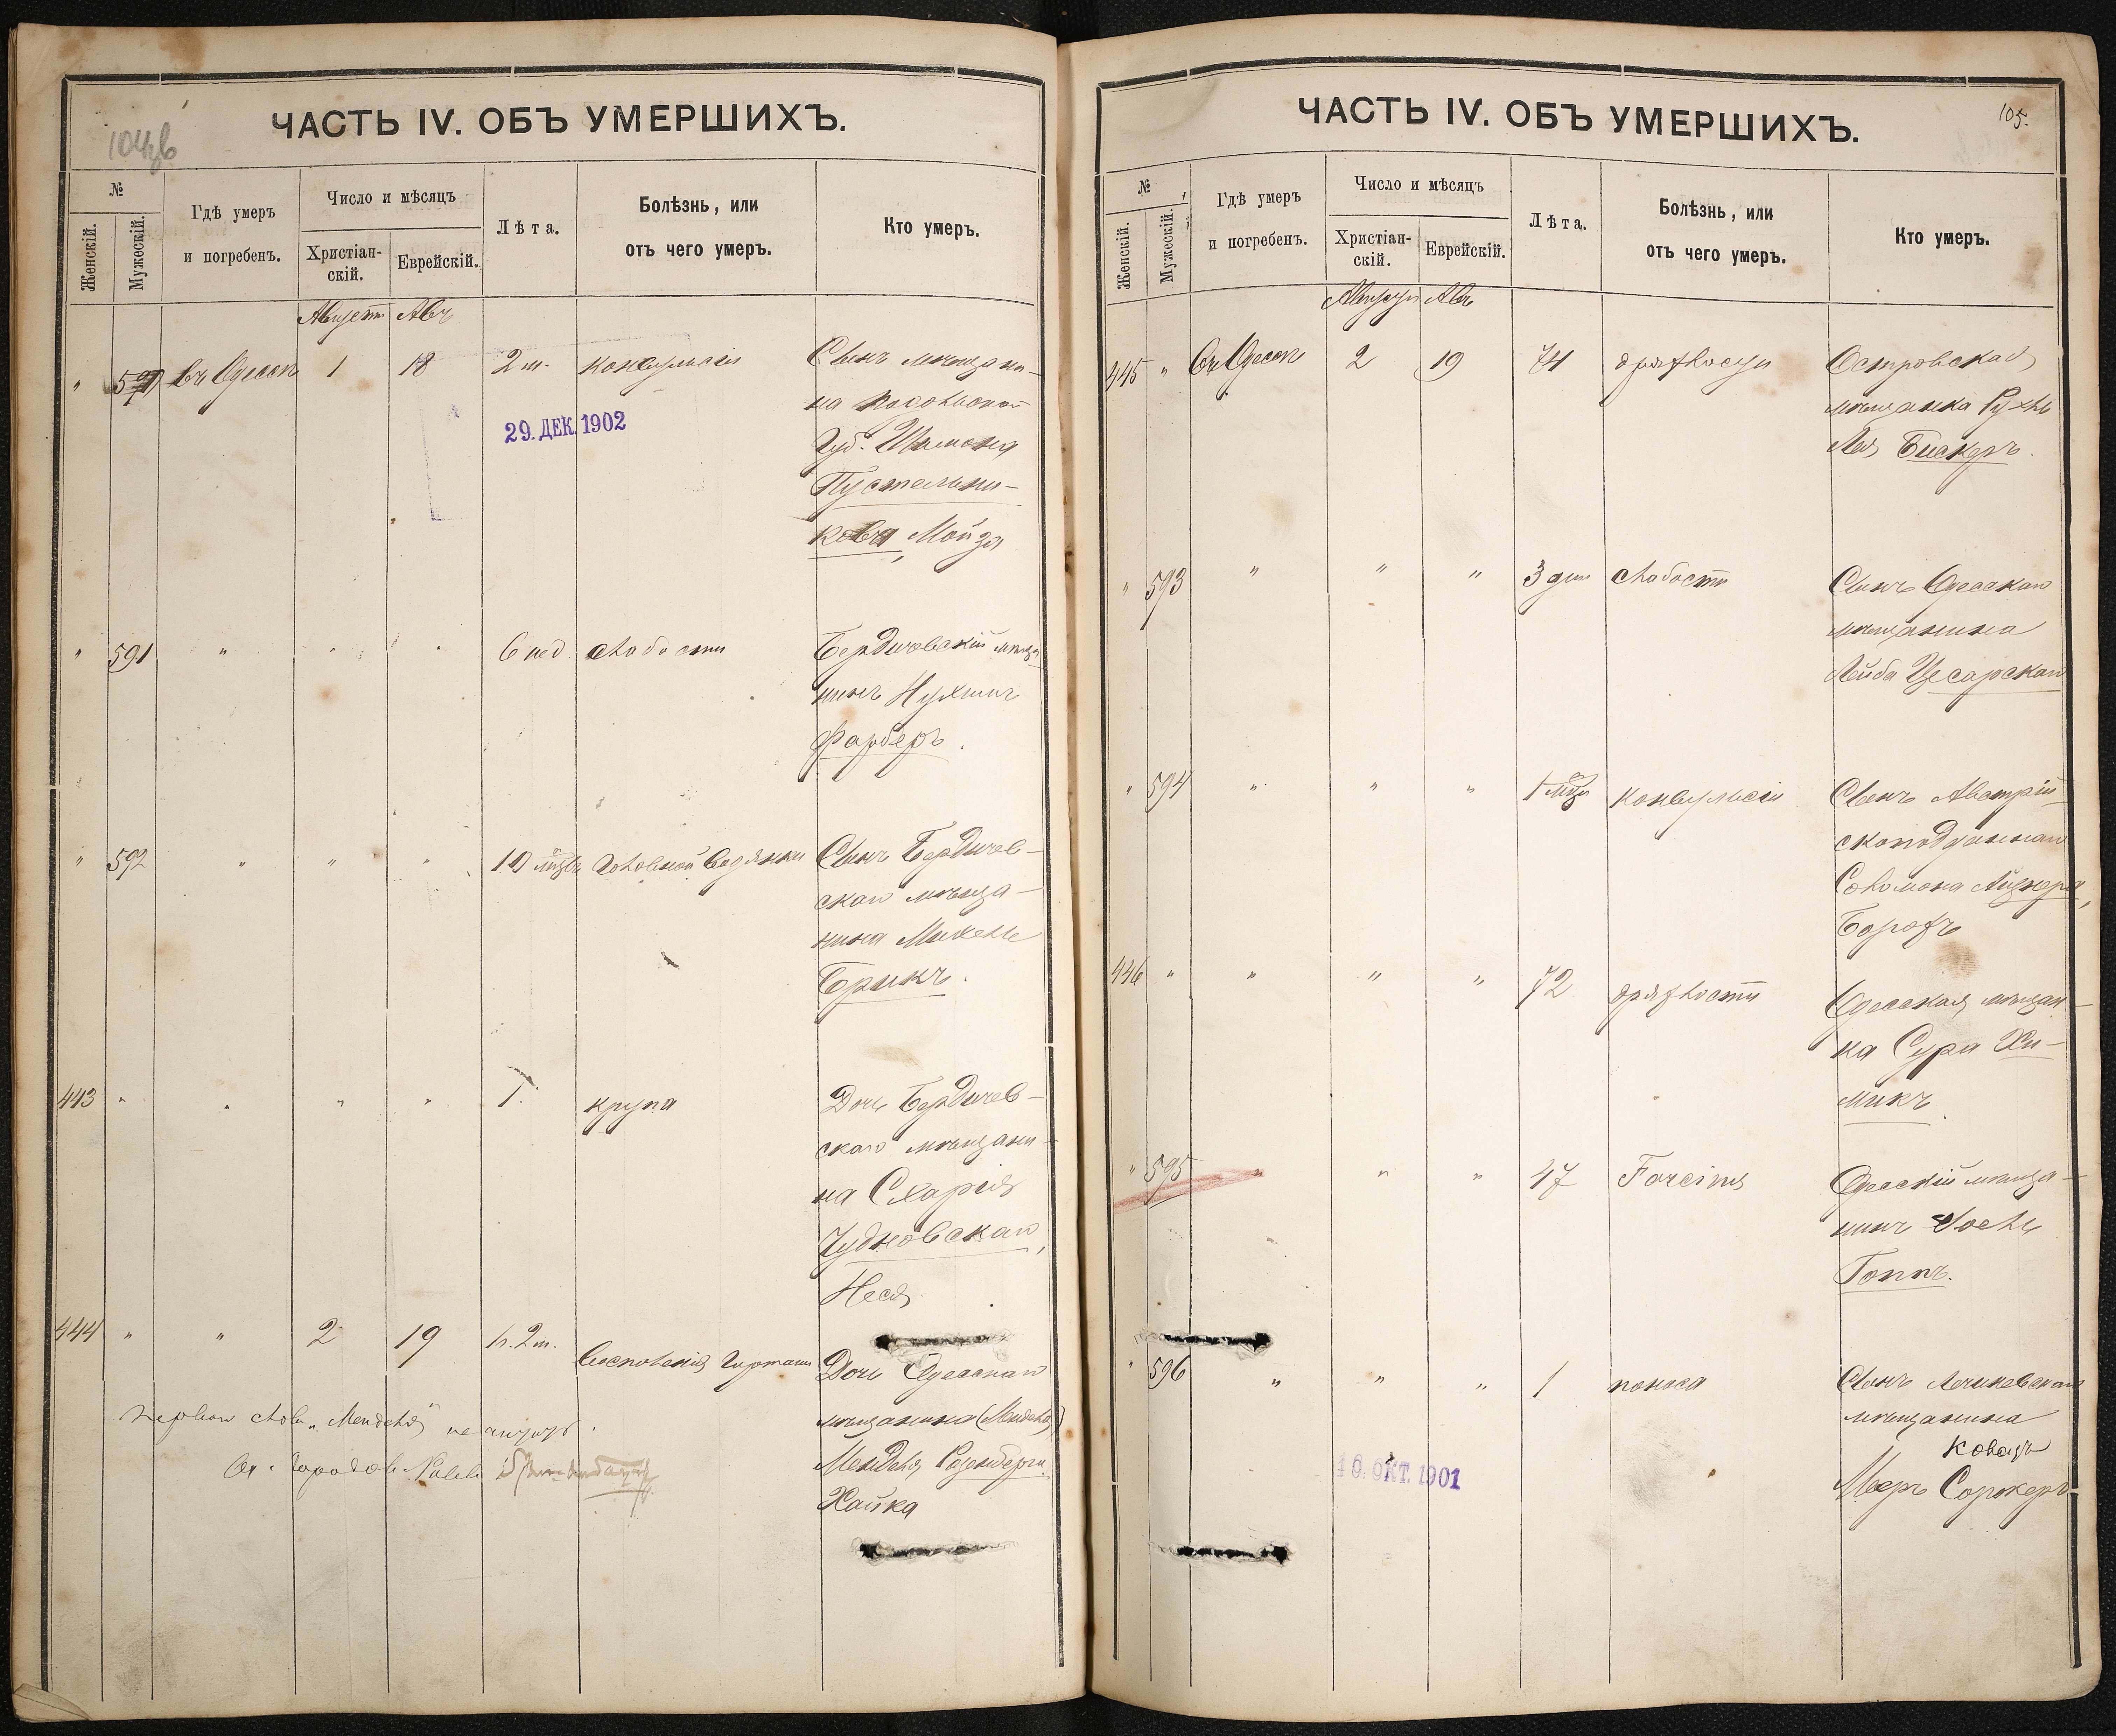 ЧАСТЬ IV. ОБЪ УМЕРШИХЪ.
№
Женскій.
Мужескій.
Гдѣ умеръ
и погребенъ.
Число и мѣсяцъ
Христіан-
скій.
Еврейскій.
Лѣта.
Болѣзнь, или
отъ чего умеръ.
Кто умеръ.
Августъ Авъ
" 590 въ Одессѣ 1 18 2 м. конвульсіи Сынъ мѣщани-
на Подольской
29. ДЕК. 1902
Губ. Шимона
Пустельни-
кова, Мойза
" 591 " " " 6 нед слабости Бердичевскій мѣща
нинъ Нухимъ
Фарберъ.
" 592 " " " 10 мѣсъ Головной водянки Сынъ Бердичев-
скаго мѣща-
нина Михель
Брикъ.
443 " " " " 1. крупа Дочь Бердичев-
скаго мѣщани-
на Схарія
Чудновскаго,
Неся
444 " " 2 19 1 г. 2 м. Воспаленія гортани Дочь Одесскаго
мѣщанина (Менделя)
Менделя Розенберга
Хайка
первое слово „Менделя" не читать.
Од. Городов. Равв.
ЧАСТЬ IV. ОБЪ УМЕРШИХЪ.
105.
№
Женскій.
Мужескій.
Гдѣ умеръ
и погребенъ.
Число и мѣсяцъ
Христіан-
скій.
Еврейскій.
Лѣта.
Болѣзнь, или
отъ чего умеръ.
Кто умеръ.
Августъ Авъ
445 " Въ Одессѣ 2 19 74 дряхлости Островская
мѣщанка Рухль
Лея Бискеръ.
" 593 " " " 3 дня слабости Сынъ Одесскаго
мѣщанина
Лейба Цесарскаго
" 594 " " " 1 мѣс конвульсіи Сынъ Австрій-
скоподданнаго
Соломона Айзнера,
Борохъ
446 " " " " 72 дряхлости Одесская мѣщан-
ка Сура Хи-
микъ
" 595 " " " 47 Farcinus Одесскій мѣща-
нинъ Іосль
Гоппъ.
" 596 " " " 1 поноса Сынъ Летичевскаго
мѣщанина
Ковацъ
Мееръ Сорокеръ
10. ОКТ. 1901